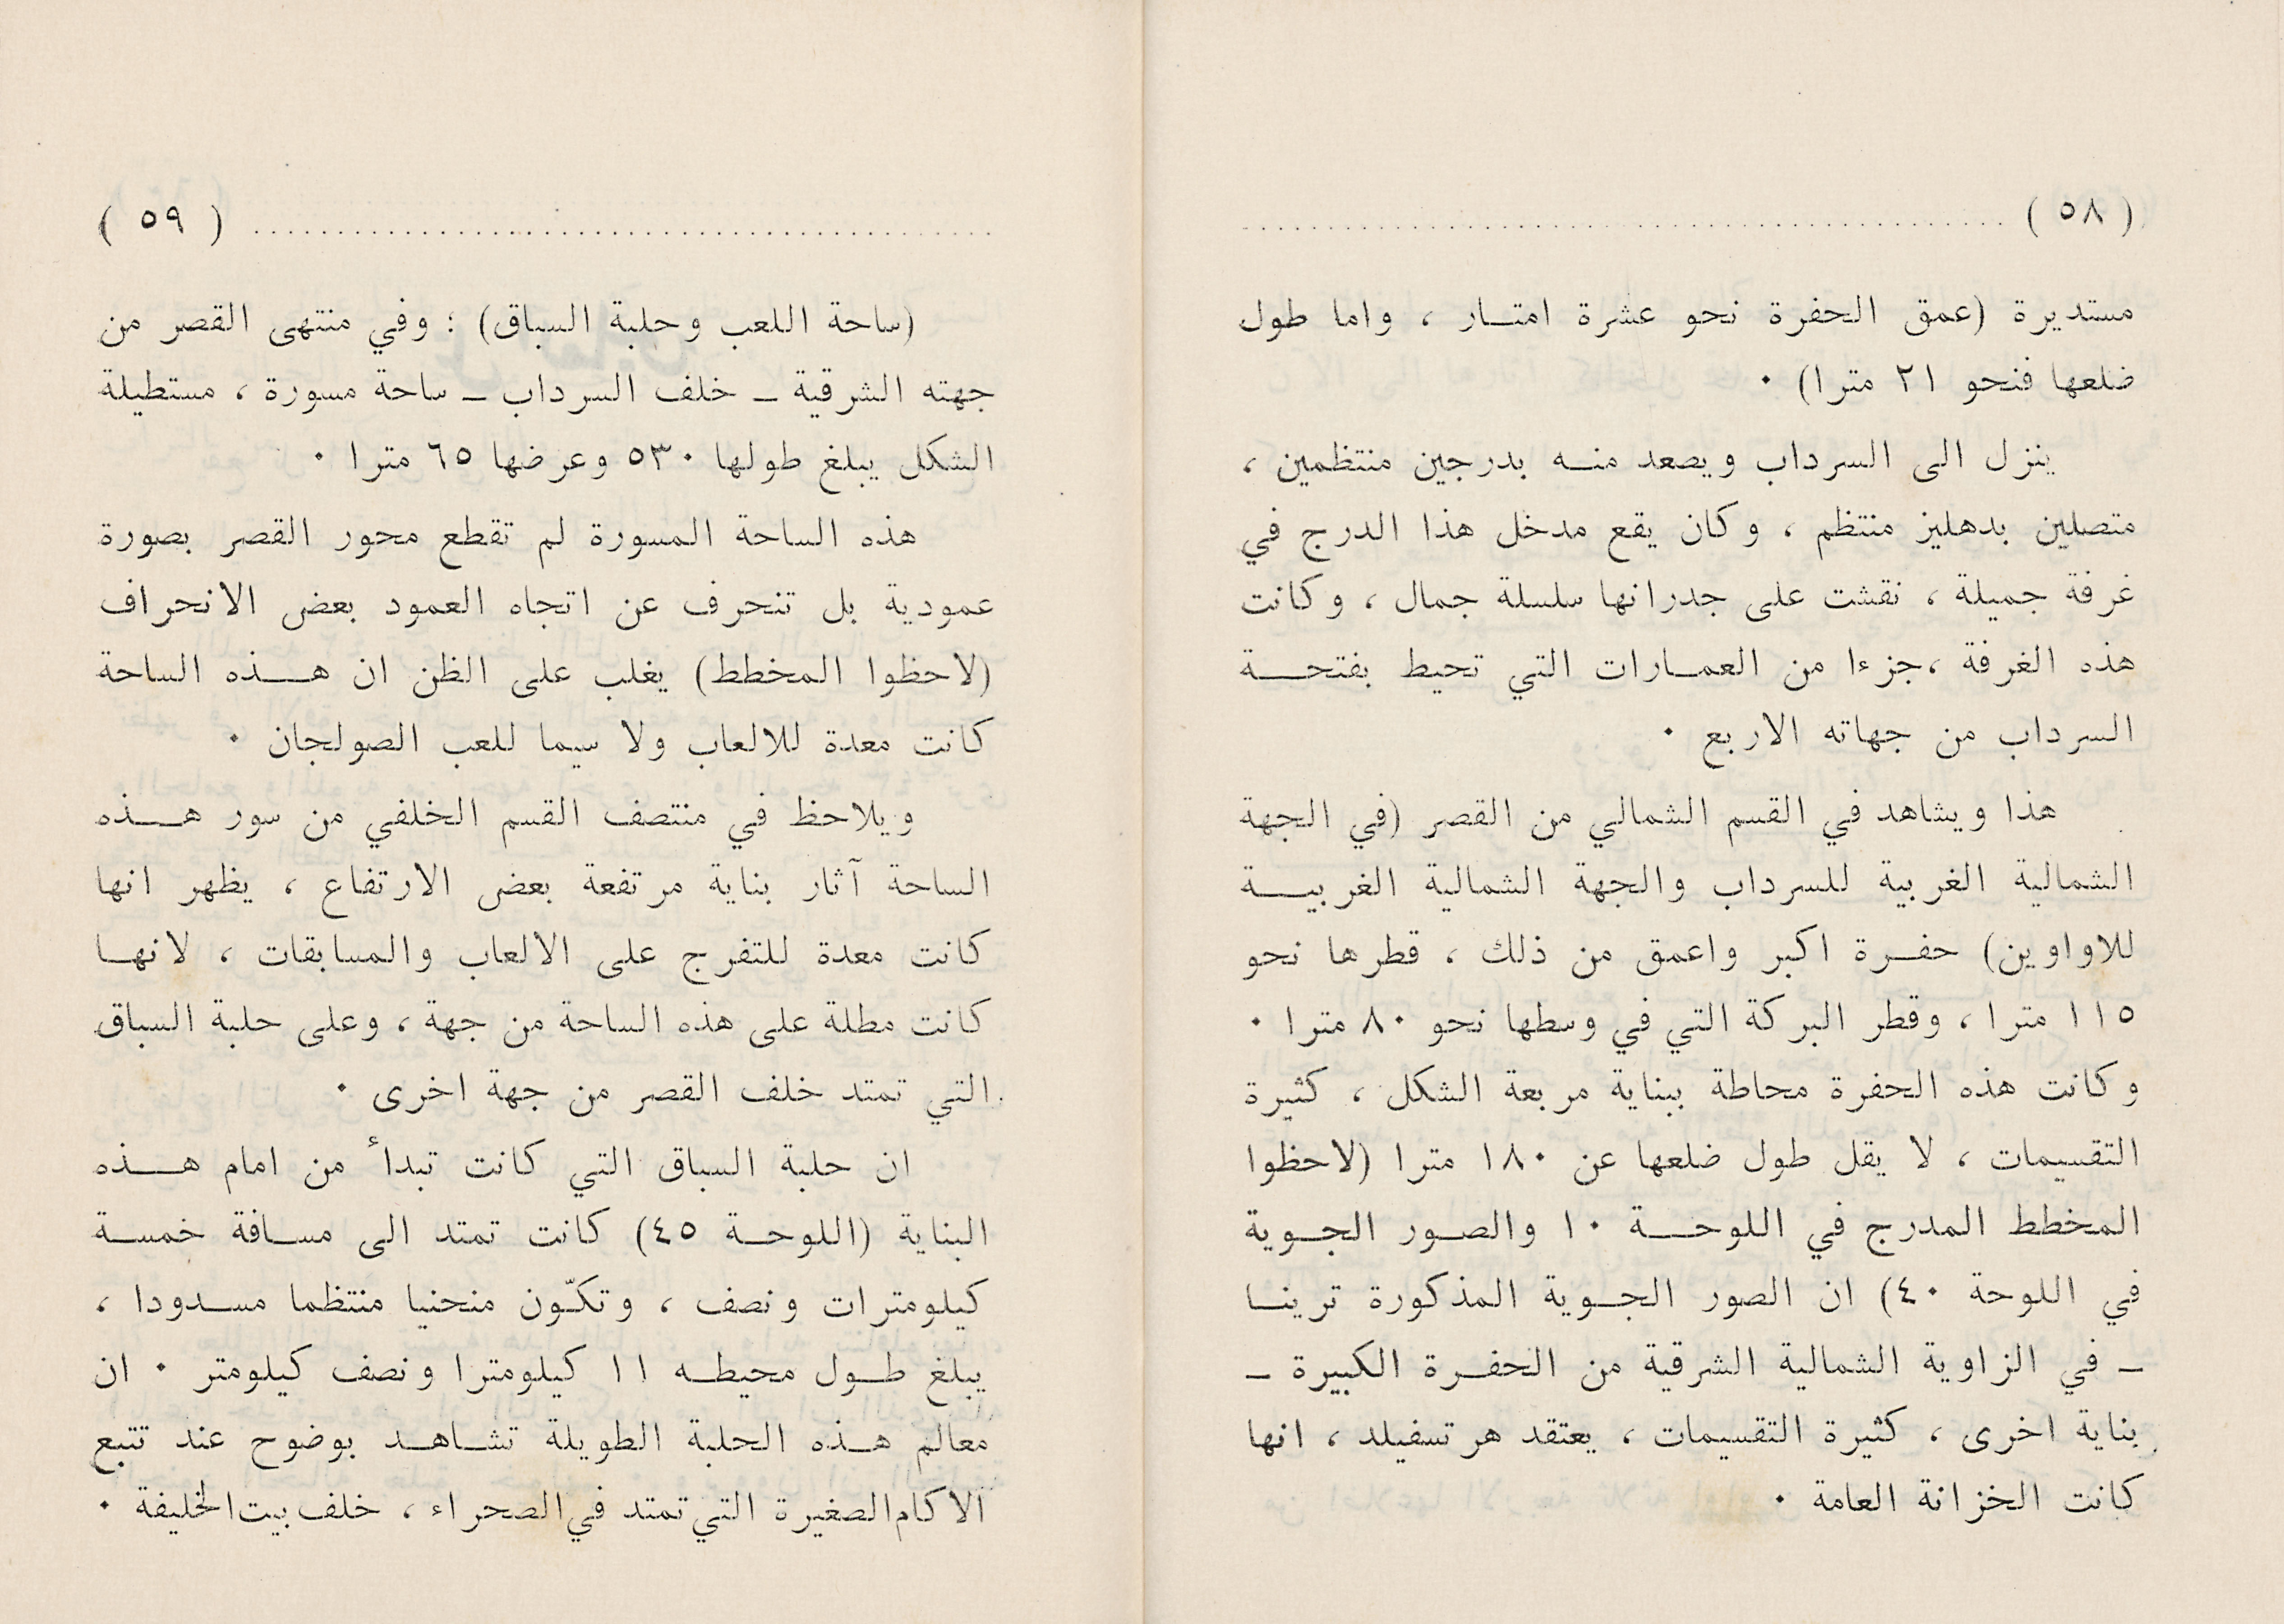 ( ٥٨ ) ................................................
مستديرة (عمق الحفرة نحو عشرة امتار ، واما طول
ضلعها فنحو ٢١ مترا) ٠
ينزل الى السرداب ويصعد منه بدرجين منتظمين ،
متصلين بدهليز منتظم ، وكان يقع مدخل هذا الدرج في
غرفة جميلة ، نقشت على جدرانها سلسلة جمال ، وكانت
هذه الغرفة ،جزءا من العمارات التي تحيط بفتحة
السرداب من جهاته الاربع ٠
هذا ويشاهد في القسم الشمالي من القصر (في الجهة
الشمالية الغربية للسرداب والجهة الشمالية الغربية
للاواوين) حفرة اكبر واعمق من ذلك ، قطرها نحو
١١٥ مترا ، وقطر البركة التي في وسطها نحو ٨٠ مترا ٠
وكانت هذه الحفرة محاطة ببناية مربعة الشكل ، كثيرة
التقسيمات ، لا يقل طول ضلعها عن ١٨٠ مترا (لاحظوا
المخطط المدرج في اللوحة ١٠ والصور الجوية
في اللوحة ٤٠) ان الصور الجوية المذكورة ترينا
– في الزاوية الشمالية الشرقية من الحفرة الكبيرة –
بناية اخرى ، كثيرة التقسيمات ، يعتقد هرتسفيلد ، انها
كانت الخزانة العامة ٠
................................................ ( ٥٩ )
(ساحة اللعب وحلبة السباق) : وفي منتهى القصر من
جهته الشرقية – خلف السرداب – ساحة مسورة ، مستطيلة
الشكل يبلغ طولها ٥٣٠ وعرضها ٦٥ مترا ٠
هذه الساحة المسورة لم تقطع محور القصر بصورة
عمودية بل تنحرف عن اتجاه العمود بعض الانحراف
(لاحظوا المخطط) يغلب على الظن ان هذه الساحة
كانت معدة للالعاب ولا سيما للعب الصولجان ٠
ويلاحظ في منتصف القسم الخلفي من سور هذه
الساحة آثار بناية مرتفعة بعض الارتفاع ، يظهر انها
كانت معدة للتفرج على الالعاب والمسابقات ، لانها
كانت مطلة على هذه الساحة من جهة ، وعلى حلبة السباق
التي تمتد خلف القصر من جهة اخرى ٠
ان حلبة السباق التي كانت تبدأ من امام هذه
البناية (اللوحة ٤٥) كانت تمتد الى مسافة خمسة
كيلومترات ونصف ، وتكّون منحنيا منتظما مسدودا ،
يبلغ طول محيطه ١١ كيلومترا ونصف كيلومتر ٠ ان
معالم هذه الحلبة الطويلة تشاهد بوضوح عند تتبع
الاكام الصغيرة التي تمتد في الصحراء ، خلف بيت الخليفة ٠